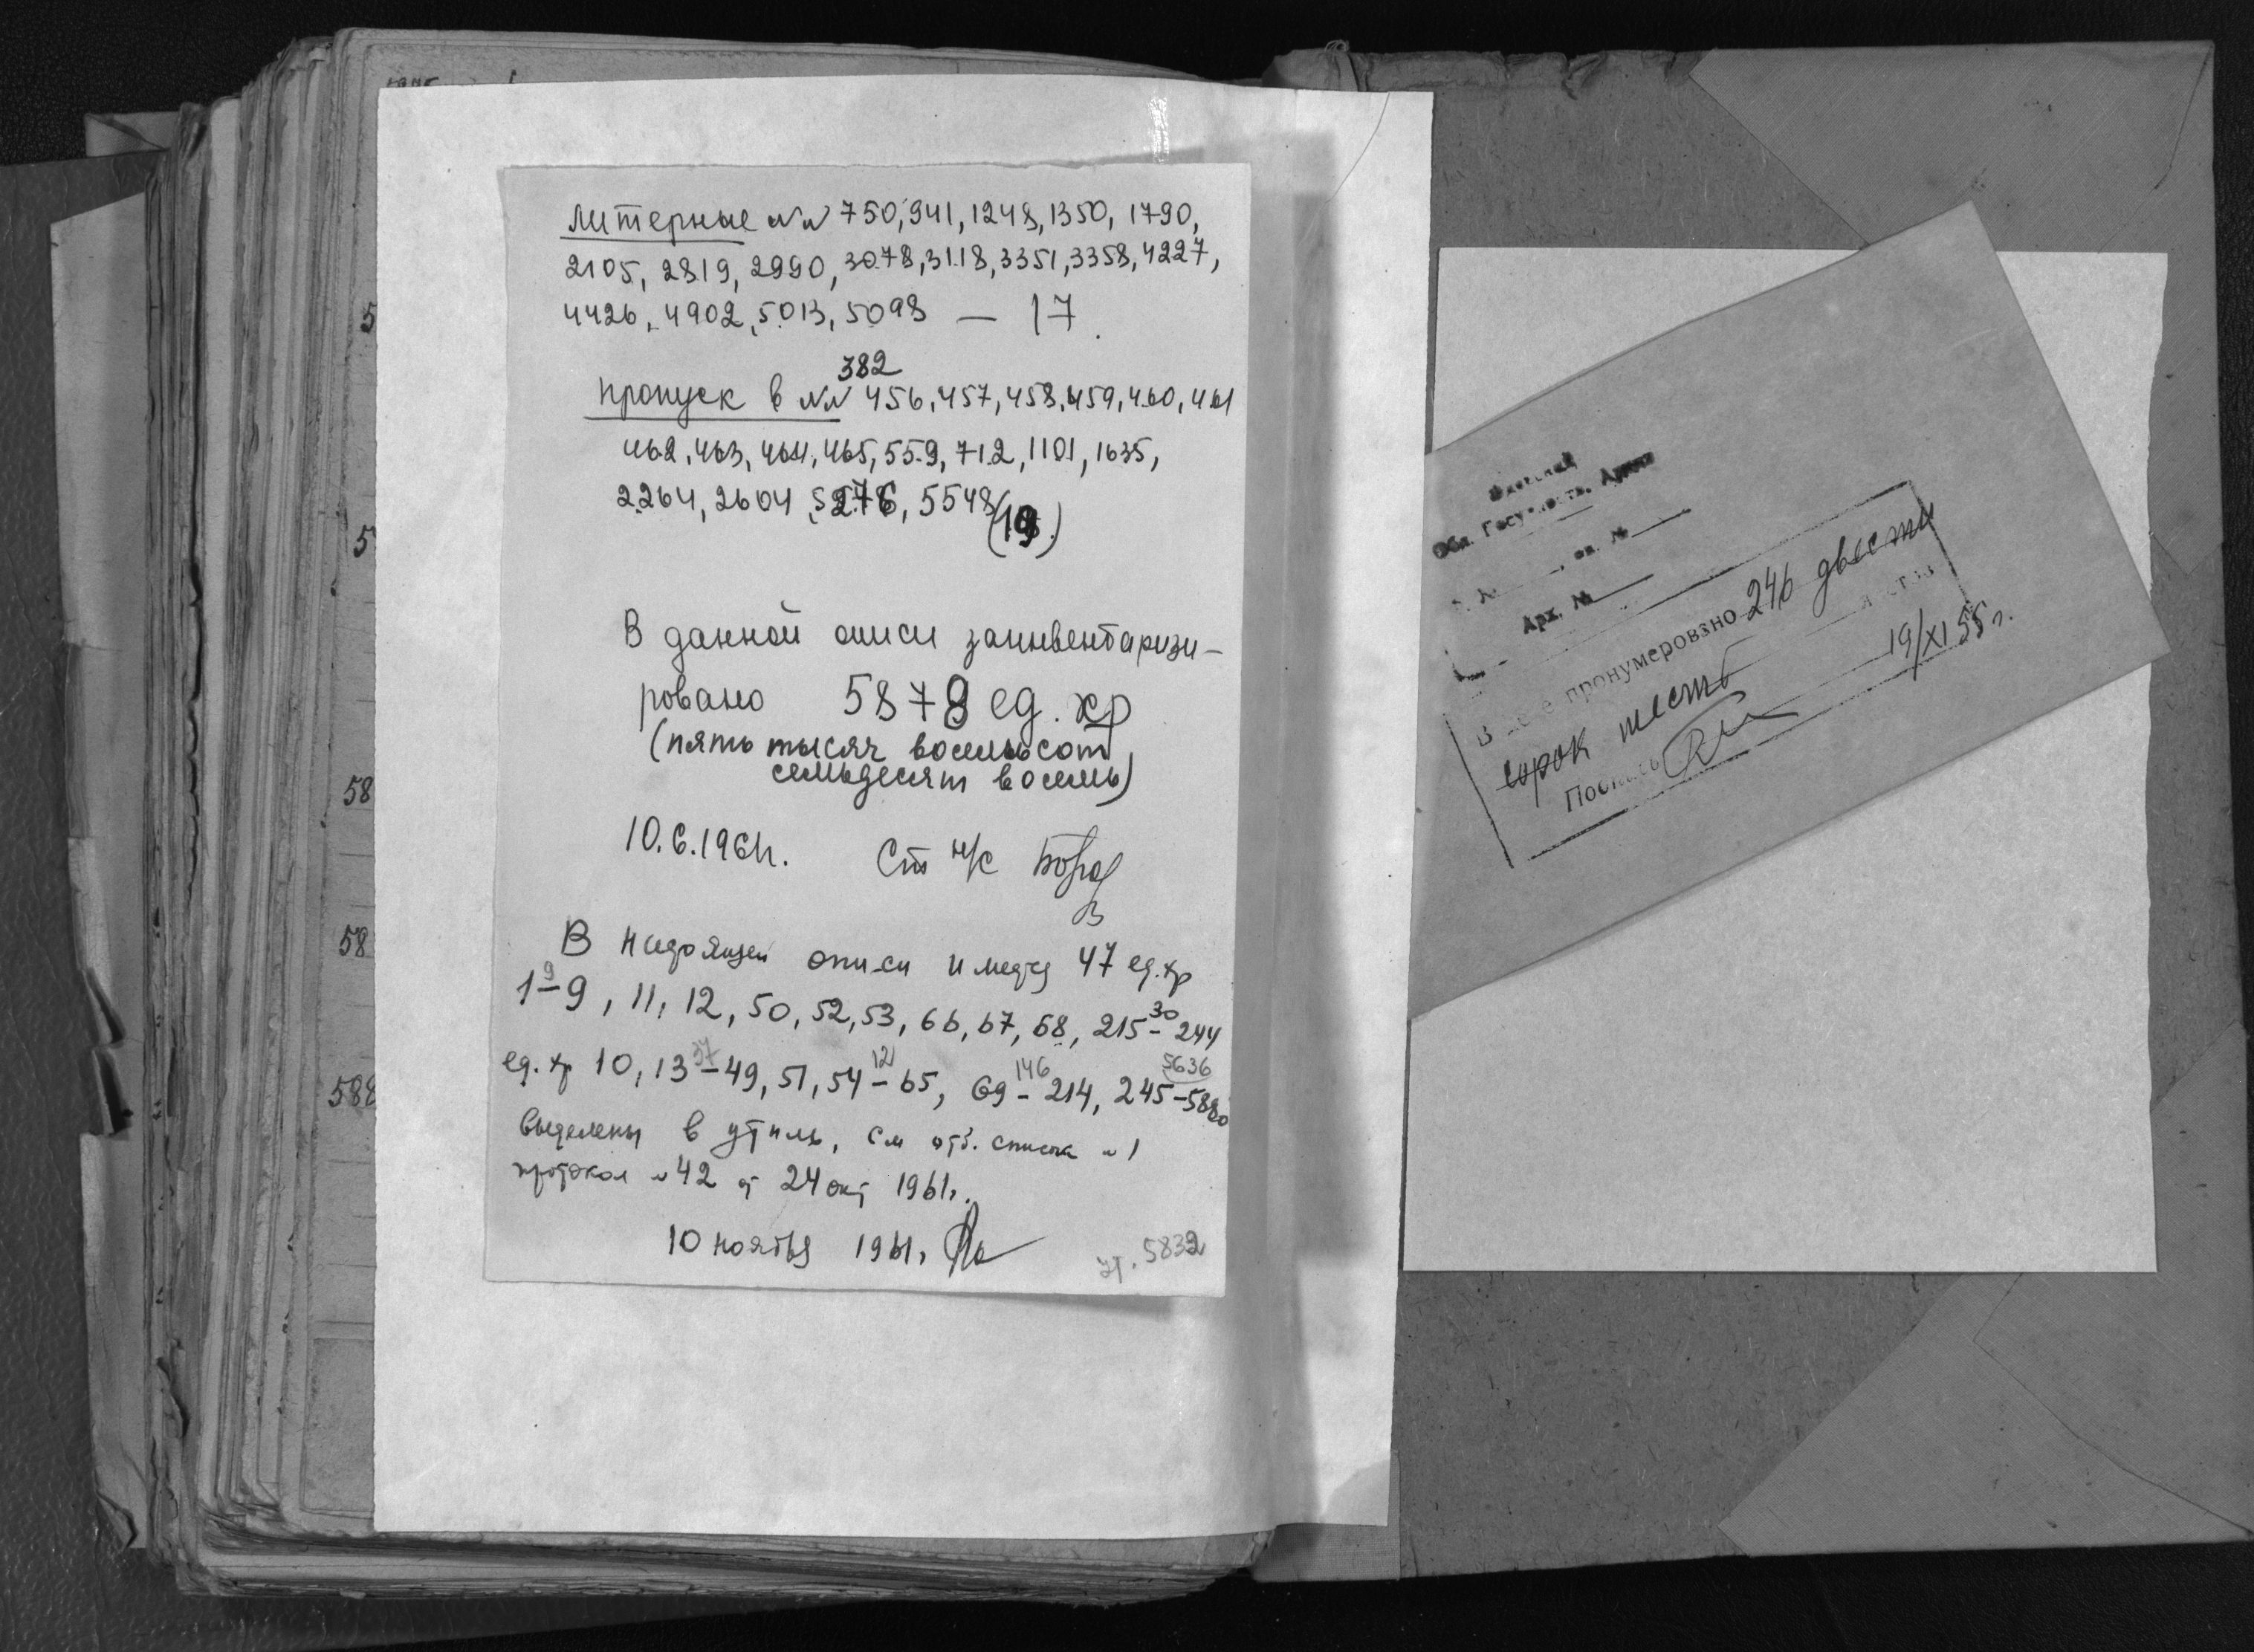 Литерные №№ 750, 941, 1248, 1350, 1790,
2105, 2819, 2990, 3078, 3118, 3351, 3358, 4227,
4426, 4902, 5013, 5098 — 17
382
Пропуск в №№ 456, 457, 458, 459, 460, 461
462, 463, 464, 465, 559, 712, 1101, 1635,
2264, 2604, 5276, 5548 (19.)
В данной описи заинвентаризи-
ровано 5878 ед. хр
(пять тысяч восемьсот
семьдесят восемь)
10.6.1961г. Ст н/с
В настоящей описи имеется 47 ед. хр
9
1–9, 11, 12, 50, 52, 53, 66, 67, 68, 215–244
30
ед. хр 10, 13–49, 51, 54–65, 69–214, 245–5880
37 12 146 5636
выделены в утиль, см отб. список №1
протокол №42 от 24 окт 1961г.
10 ноября 1961г.
ут. 5832
5
5
58
58
588
Обл. Государств. Архив
оп. №
Арх. №
В деле пронумеровано 246 двести
сорок шесть листов
Подпись 19/XI 55 г.